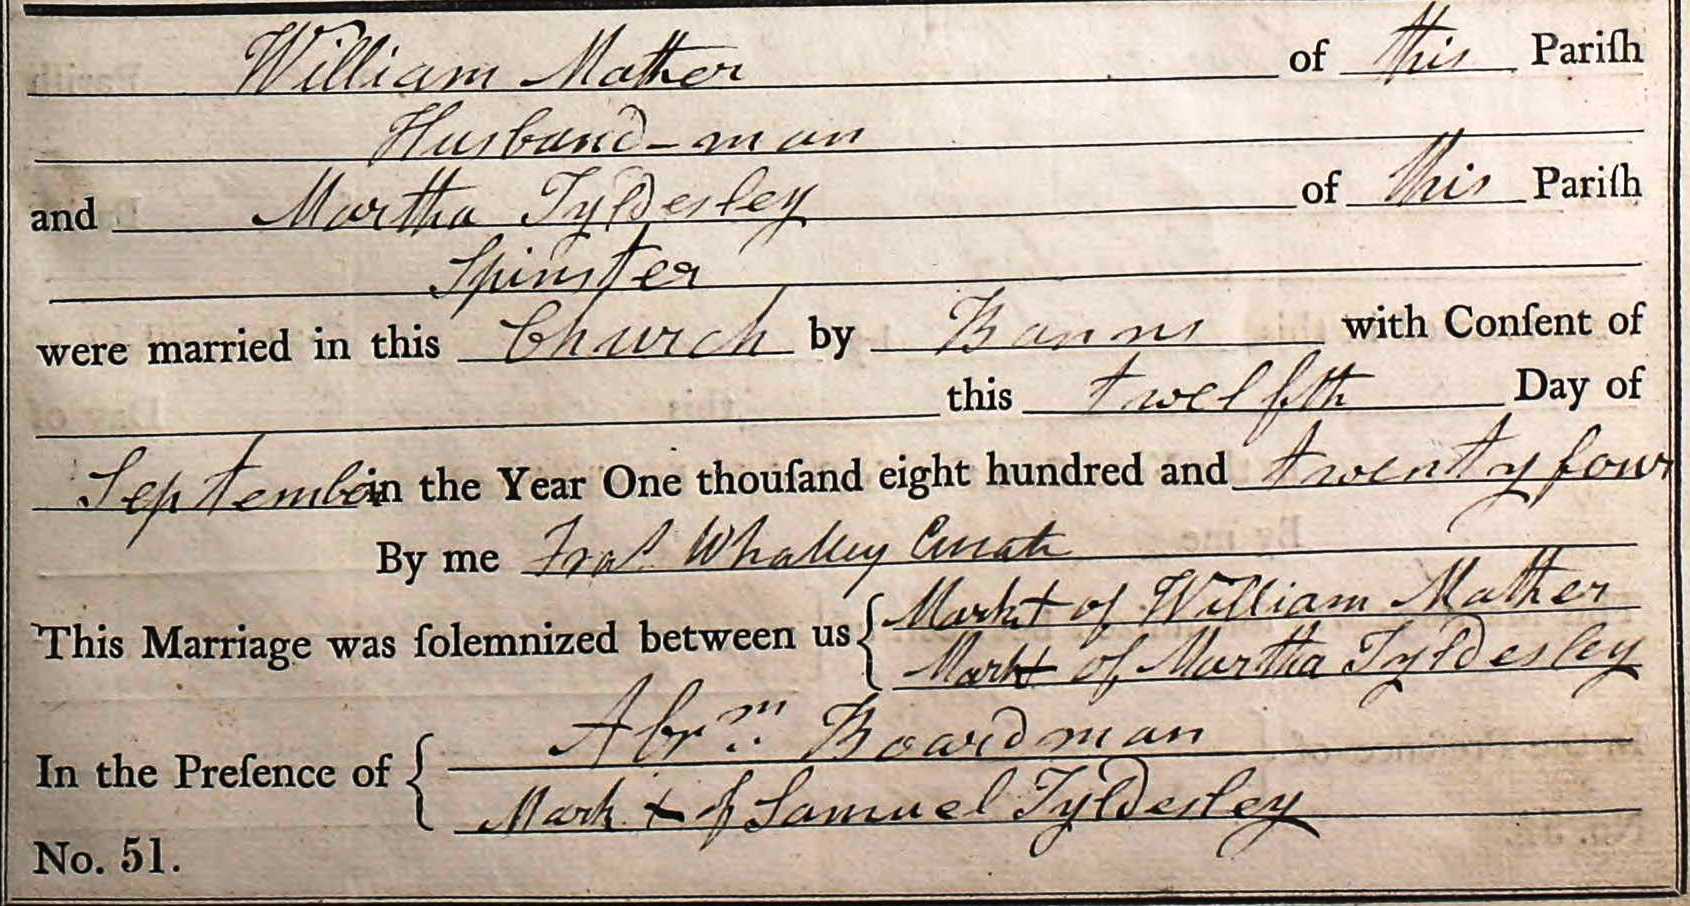 William Mather of this Pariſh
Husband-man
and Martha Tyldesley of this Pariſh
Spinster
were married in this Church by Banns with Conſent of
this twelfth Day of
September in the Year One thouſand eight hundred and twenty four
By me Fras. Whalley Curate
This Marriage was ſolemnized between us { Mark + of William Mather
Mark + of Martha Tyldesley
In the Preſence of { Abrm. Boardman
Mark + of Samuel Tyldesley
No. 51.